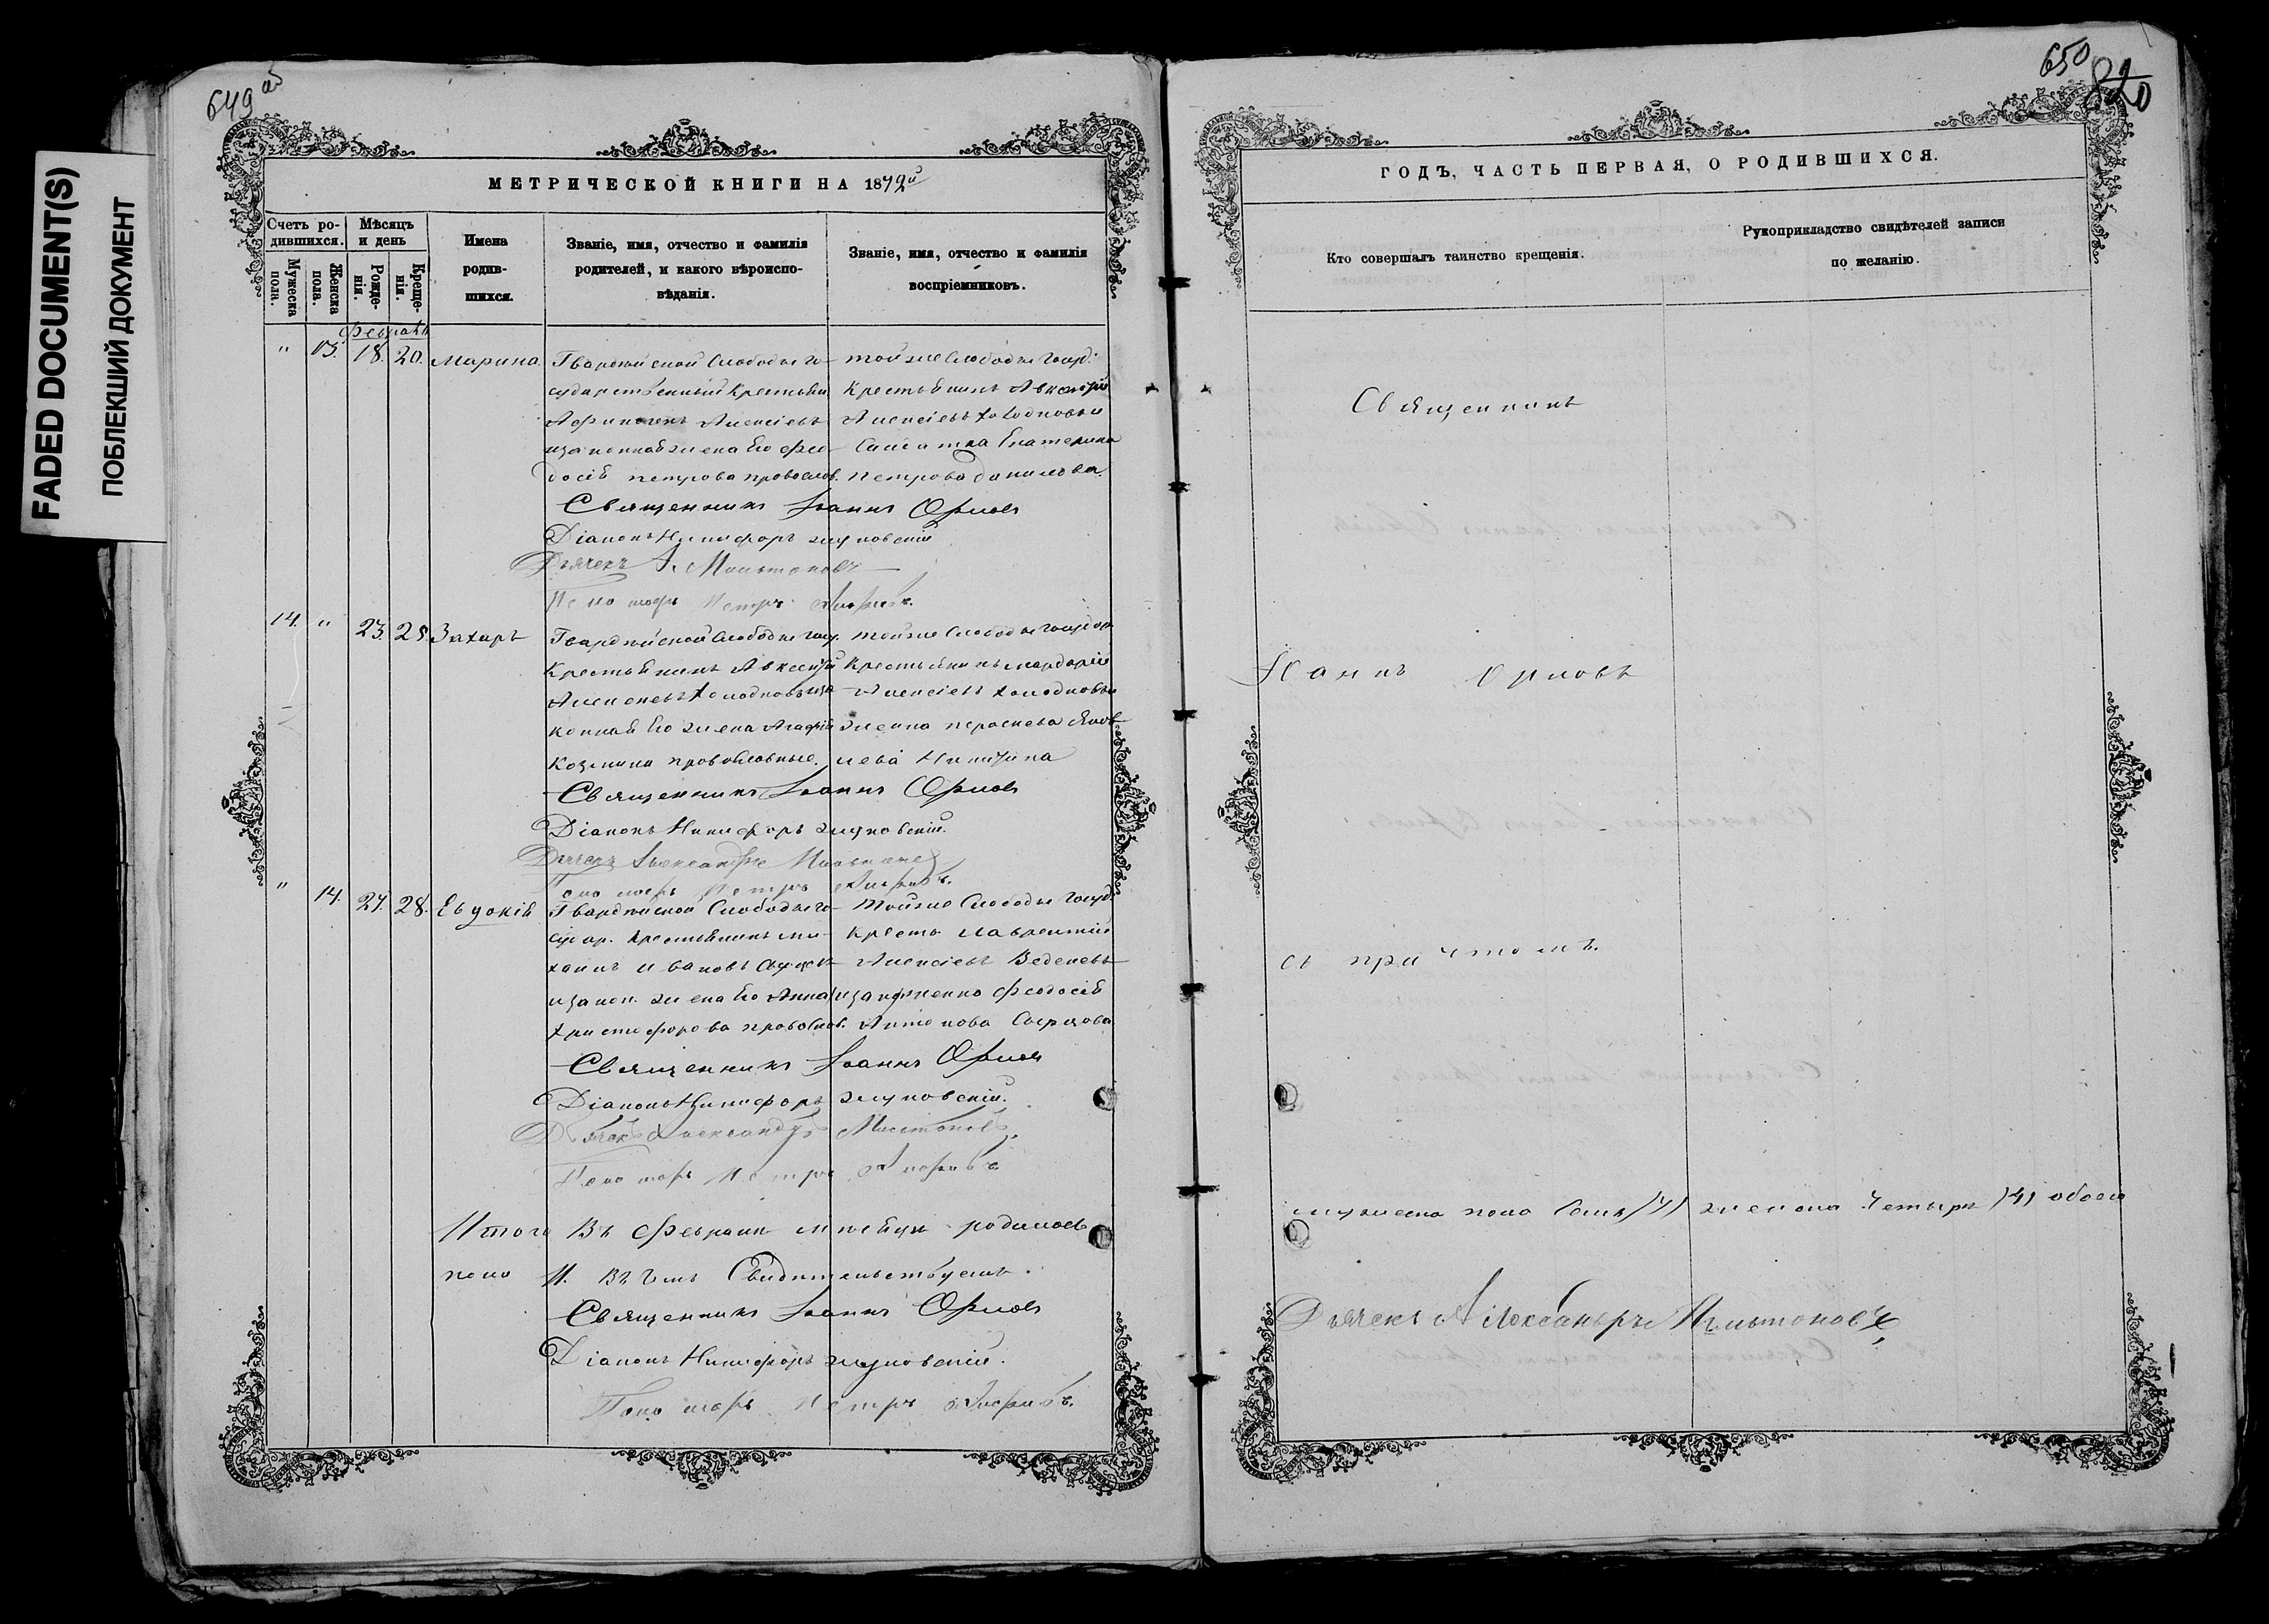 649 об
650
820
FADED DOCUMENT(S)
ПОБЛЕКШИЙ ДОКУМЕНТ
МЕТРИЧЕСКОЙ КНИГИ НА 1872й
Счетъ ро-
дившихся.
Мужеска
пола.
Женска
пола.
Мѣсяцъ
и день
Рожде-
нія.
Креще-
нія.
Имена
родив-
шихся.
Званіе, имя, отчество и фамилія
родителей, и какого вѣроиспо-
вѣданія.
Званіе, имя, отчество и фамилія
воспріемниковъ.
Февраль
" 13. 18. 20. Марина
Гвардейской Слободы го-
сударственный Крестьян
Алексіевъ
законная жена Его Фео-
досія Петрова православ.
тойже Слободы Госуд:
Крестьянинъ Авксентій
Алексіевъ Холодновъ и
Екатерина
Петрова Данилова.
Священникъ Іоаннъ Орловъ
Діаконъ Никифоръ Жуковскій
Дьячекъ А. Мильтоновъ
Пономарь Петръ
14. " 23. 25. Захаръ
Гвардейской Слободы госу.
Крестьянинъ Авксентій
Алексіевъ Холодновъ иза
конная Его жена Агафія
Козмина православные.
тойже Слободы государ
Крестьянинъ Мардарій
Алексіевъ Холодновъ и
Никитина
Священникъ Іоаннъ Орловъ
Діаконъ Никифоръ Жуковскій.
Дьячекъ Александръ Мильтоновъ
Пономарь Петръ
" 14. 27. 28. Евдокія
Гвардейской Слободы го-
судар. Крестьянинъ ми-
хаилъ Ивановъ
изакон. жена Его Анна
Христофорова православ.
Тойже Слободы Госуд.
Кресть Лаврентій
Алексіевъ Веденевъ
Феодосія
Антонова
Священникъ Іоаннъ Орловъ
Діаконъ Никифоръ Жуковскій.
Дьячекъ Александръ Мильтоновъ
Пономарь Петръ
Итого Въ Февралѣ мѣсяцѣ родилось
пола 11. Въ чемъ Свидѣтельствуемъ.
Священникъ Іоаннъ Орловъ
Діаконъ Никифоръ Жуковскій.
Пономарь Петръ
ГОДЪ, ЧАСТЬ ПЕРВАЯ, О РОДИВШИХСЯ.
Кто совершалъ таинство крещенія.
Рукоприкладство свидѣтелей записи
по желанію.
Священникъ
Іоаннъ Орловъ
съ причтомъ.
мужеска пола Семь (7) женска Четыре (4) обоего
Дьячекъ Александръ Мильтоновъ